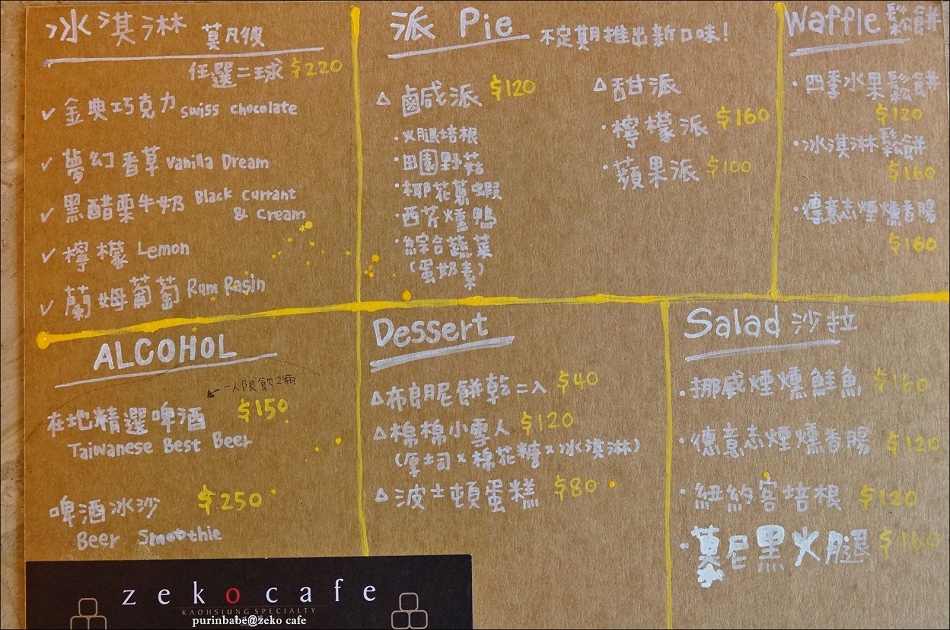 冰淇淋 莫凡彼
任選二球 $220
✓ 金典巧克力 swiss chocolate
✓ 夢幻香草 Vanilla Dream
✓ 黑醋栗牛奶 Black Currant
& Cream
✓ 檸檬 Lemon
✓ 蘭姆葡萄 Rum Rasin
派 Pie 不定期推出新口味!
△ 鹹派 $120
·火腿培根
·田園野菇
·椰花慕蝦
·西芹燻鴨
·綜合蔬菜
(蛋奶素)
△甜派
·檸檬派 $160
·蘋果派 $100
Waffle 鬆餅
·四季水果鬆餅
$120
·冰淇淋鬆餅
$160
·德意志煙燻香腸
$160
ALCOHOL
一人限飲2瓶
在地精選啤酒 $150
Taiwanese Best Beer
啤酒冰沙 $250
Beer Smoothie
Dessert
△布朗尼餅乾二入 $40
△棉棉小雪人 $120
(厚土司×棉花糖×冰淇淋)
△波士頓蛋糕 $80
Salad 沙拉
·挪威煙燻鮭魚
·德意志煙燻香腸 $120
·紐約客培根 $120
·慕尼黑火腿
zeko cafe
KAOHSIUNG SPECIALTY
purinbabe@zeko cafe